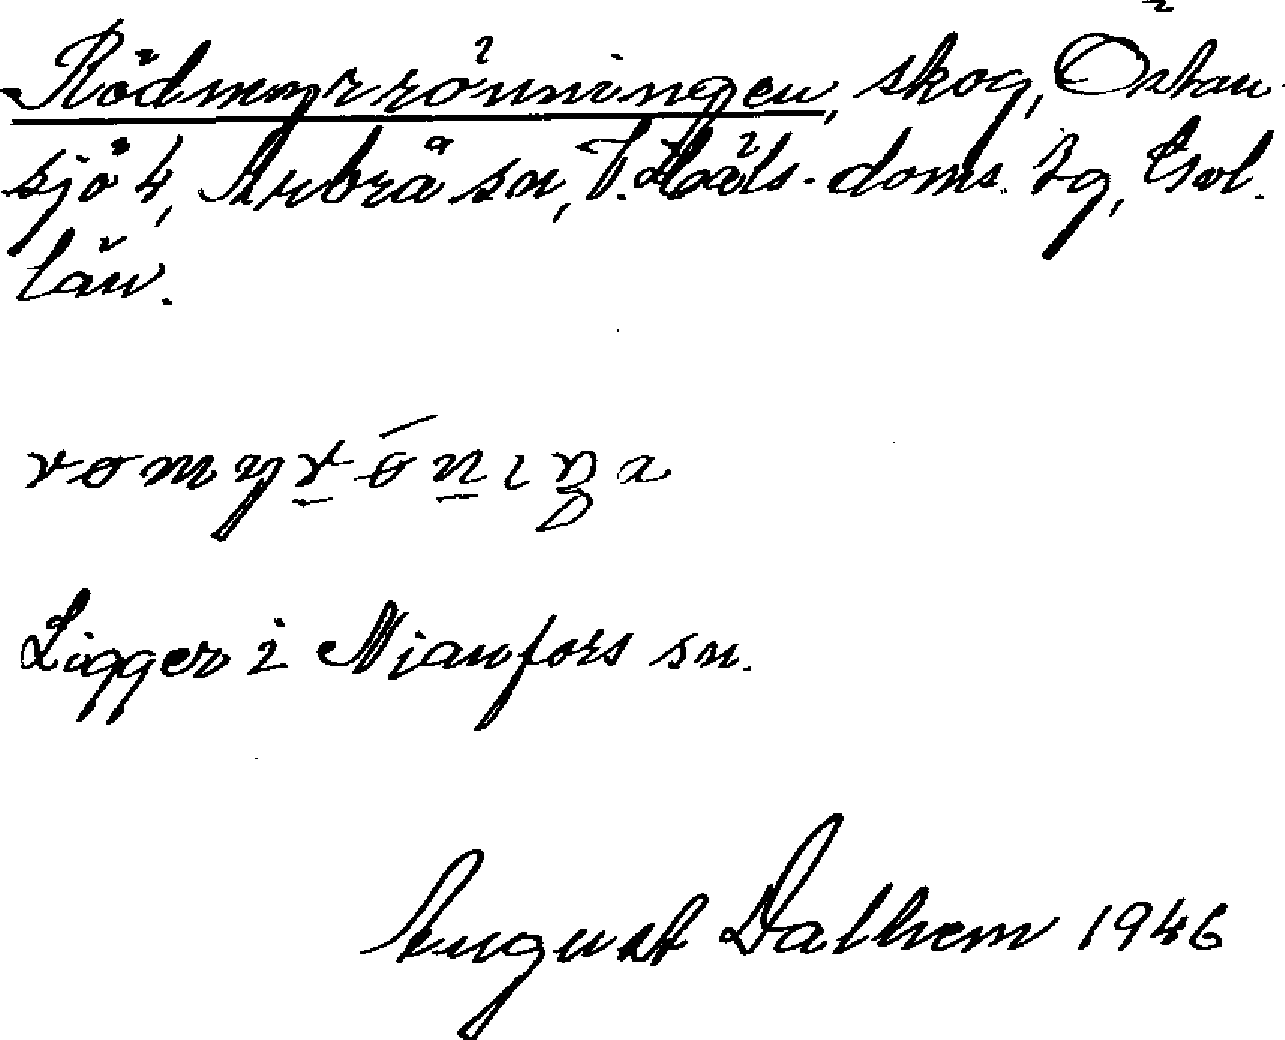 Rödmyrrönningen, skog, Östan-
sjö 4, Arbrå sn, V. Häls. doms. tg, Gvl.
län.
Ligger i Njanfors sn.
August Dalhem 1946